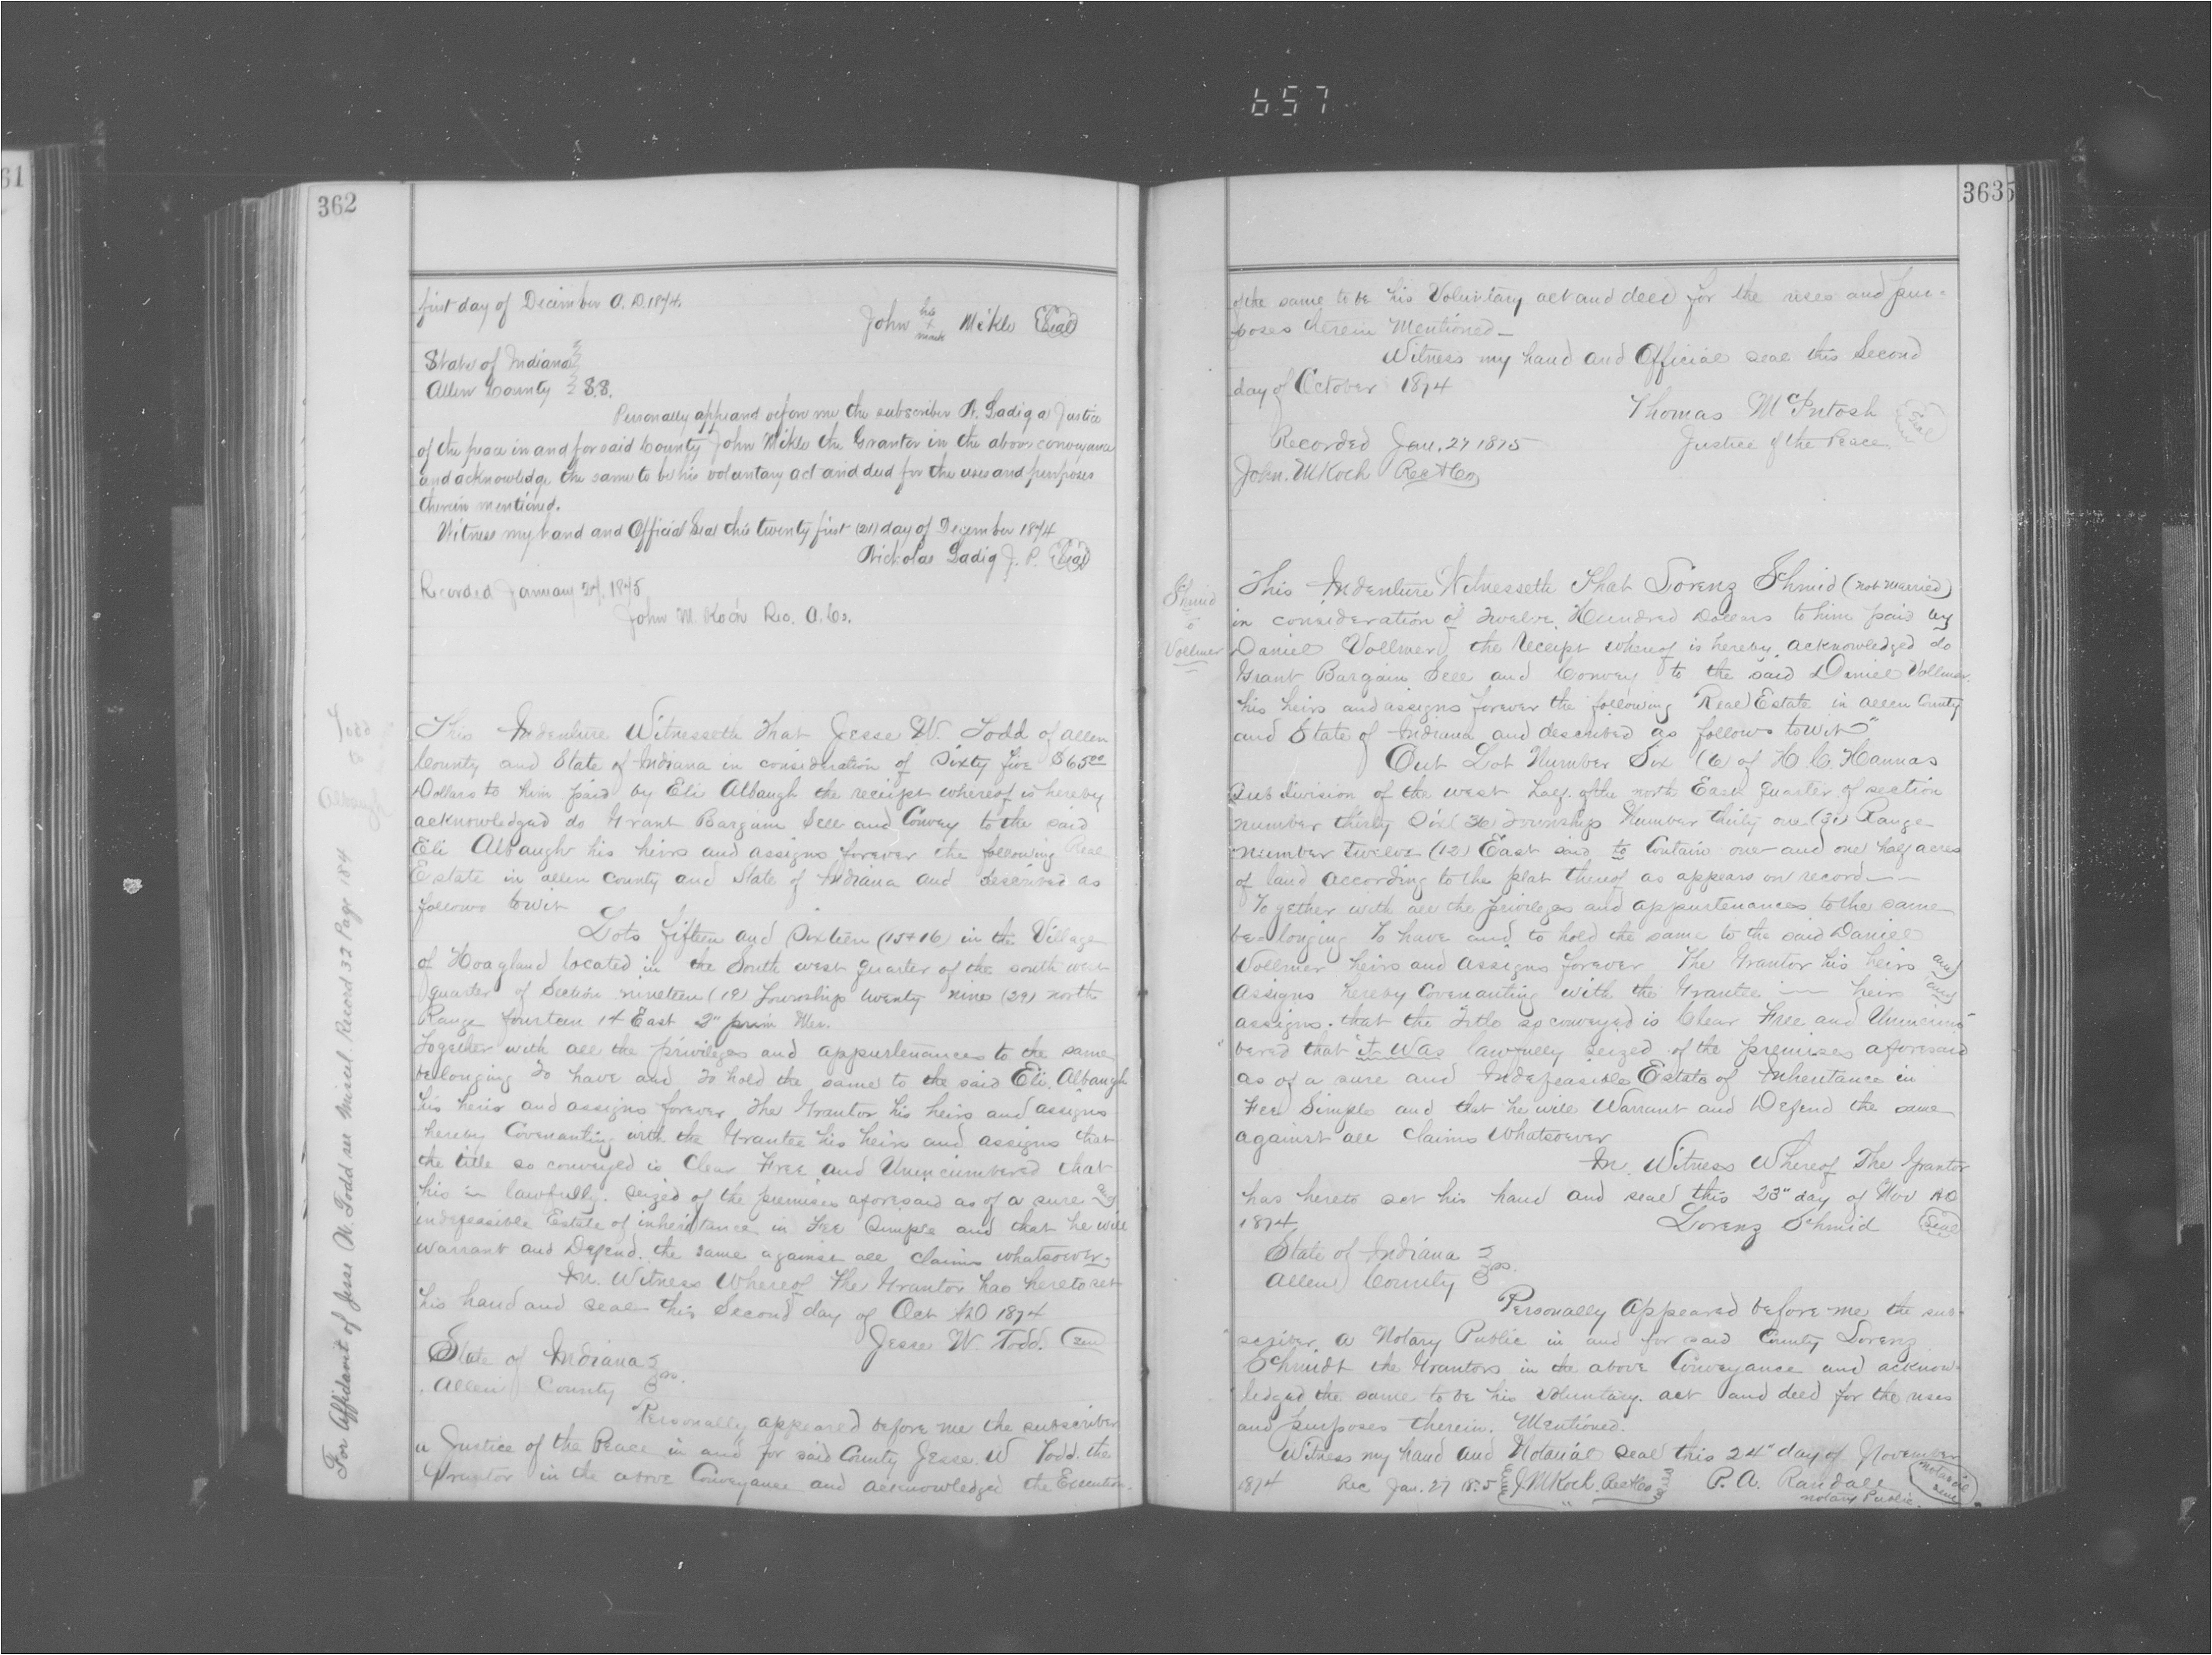 657
61
362
first day of December A. D. 1874.
his
John + Mikle (Seal)
mark
State of Indiana
Allen County } S.S.
Personally appeard before me the subscriber N. Ladig a Justice
of the peace in and for said County John Mikle the Grantor in the above conveyance
and acknowledge the same to be his voluntary act and deed for the uses and purposes
therein mentioned.
Witness my hand and Official Seal this twenty first (21) day of December 1874
Nickolas Ladig J. P. (Seal)
Recorded January 27. 1875
John M. Koch Rec. A. Co.
Todd
to
Albaugh
This Indenture Witnesseth That Jesse W. Todd of Allen
County and State of Indiana in consideration of Sixty five $65.00
Dollars to him paid by Eli Albaugh the receipt whereof is hereby
acknowledged do Grant Bargain Sell and Convey to the said
Eli Albaugh his heirs and assigns forever the following Real
Estate in Allen County and State of Indiana and described as
follows towit
Lots fifteen and Sixteen (15+16) in the Village
of Hoagland located in the South west quarter of the south west
quarter of Section nineteen (19) Township twenty nine (29) north
Range fourteen 14 East 2" prin Mer.
Together with all the privileges and appurtenances to the same
belonging To have and To hold the same to the said Eli. Albaugh
his heirs and assigns forever The Grantor his heirs and assigns
hereby Covenanting with the Grantee his heirs and assigns that
the title so conveyed is Clear Free and Unincumbered that
his is lawfully seized of the premises aforesaid as of a sure and
indefeasible Estate of inheritance in Fee Simple and that he will
Warrant and Defend. the same against all claims whatsoever
In Witness Whereof The Grantor has hereto set
his hand and seal this Second day of Oct AD 1874
Jesse W. Todd. (Seal)
State of Indiana
Allen County } ss.
Personally appeared before me the subscriber
a Justice of the Peace in and for said County Jesse. W Todd. the
Grantor in the above Conveyance and acknowledged the Execution
For Affidavit of Jesse W. Todd see Miscel. Record 32 Page 184
363
of the same to be his Voluntary act and deed for the uses and pur-
poses therein Mentioned
Witness my hand and Official seal this Second
day of October 1874
Thomas McIntosh (Seal)
Justice of the Peace
Recorded Jan. 27 1875
John. M Koch Rec A Co
Schmid
to
Vollmer
This Indenture Witnesseth That Lorenz Schmid (not married)
in consideration of Twelve Hundred Dollars to him paid by
Daniel Vollmer the Receipt whereof is hereby acknowledged do
Grant Bargain Sell and Convey to the said Daniel Vollmer
his heirs and assigns forever the following Real Estate in Allen County
and State of Indiana and described as follows towit"
Out Lot Number Six (6) of H. C. Hannas
Subdivision of the west half of the north East quarter of section
number thirty Six (36) Township Number thirty one (31) Range
number twelve (12) East said to Contain one and one half acres
of land according to the plat thereof as appears on record
Together with all the privileges and appurtenances to the same
be-longing To have and to hold the same to the said Daniel
Vollmer heirs and assigns forever The Grantor his heirs and
Assigns hereby Covenanting with the Grantee heirs and
assigns. that the Title so conveyed is Clear Free and Unincum-
bered that it was lawfully seized of the premises aforesaid
as of a sure and Indefeasible Estate of Inheritance in
Fee Simple and that he will Warrant and Defend the same
against all Claims Whatsoever
In Witness Whereof The Grantor
has hereto set his hand and seal this 23" day of Nov AD
1874 Lorenz Schmid (Seal)
State of Indiana
Allen County } ss.
Personally Appeared before me the sub-
scriber a Notary Public in and for said County Lorenz
Schmidt the Grantors in the above Conveyance and acknow-
ledged the same to be his voluntary. act and deed for the uses
and purposes therein. Mentioned.
Witness my hand and Notarial seal this 24" day of November
1874 Rec Jan. 27 1875 J M Koch. Rec A Co P. A. Randall (notarial seal)
Notary Public.